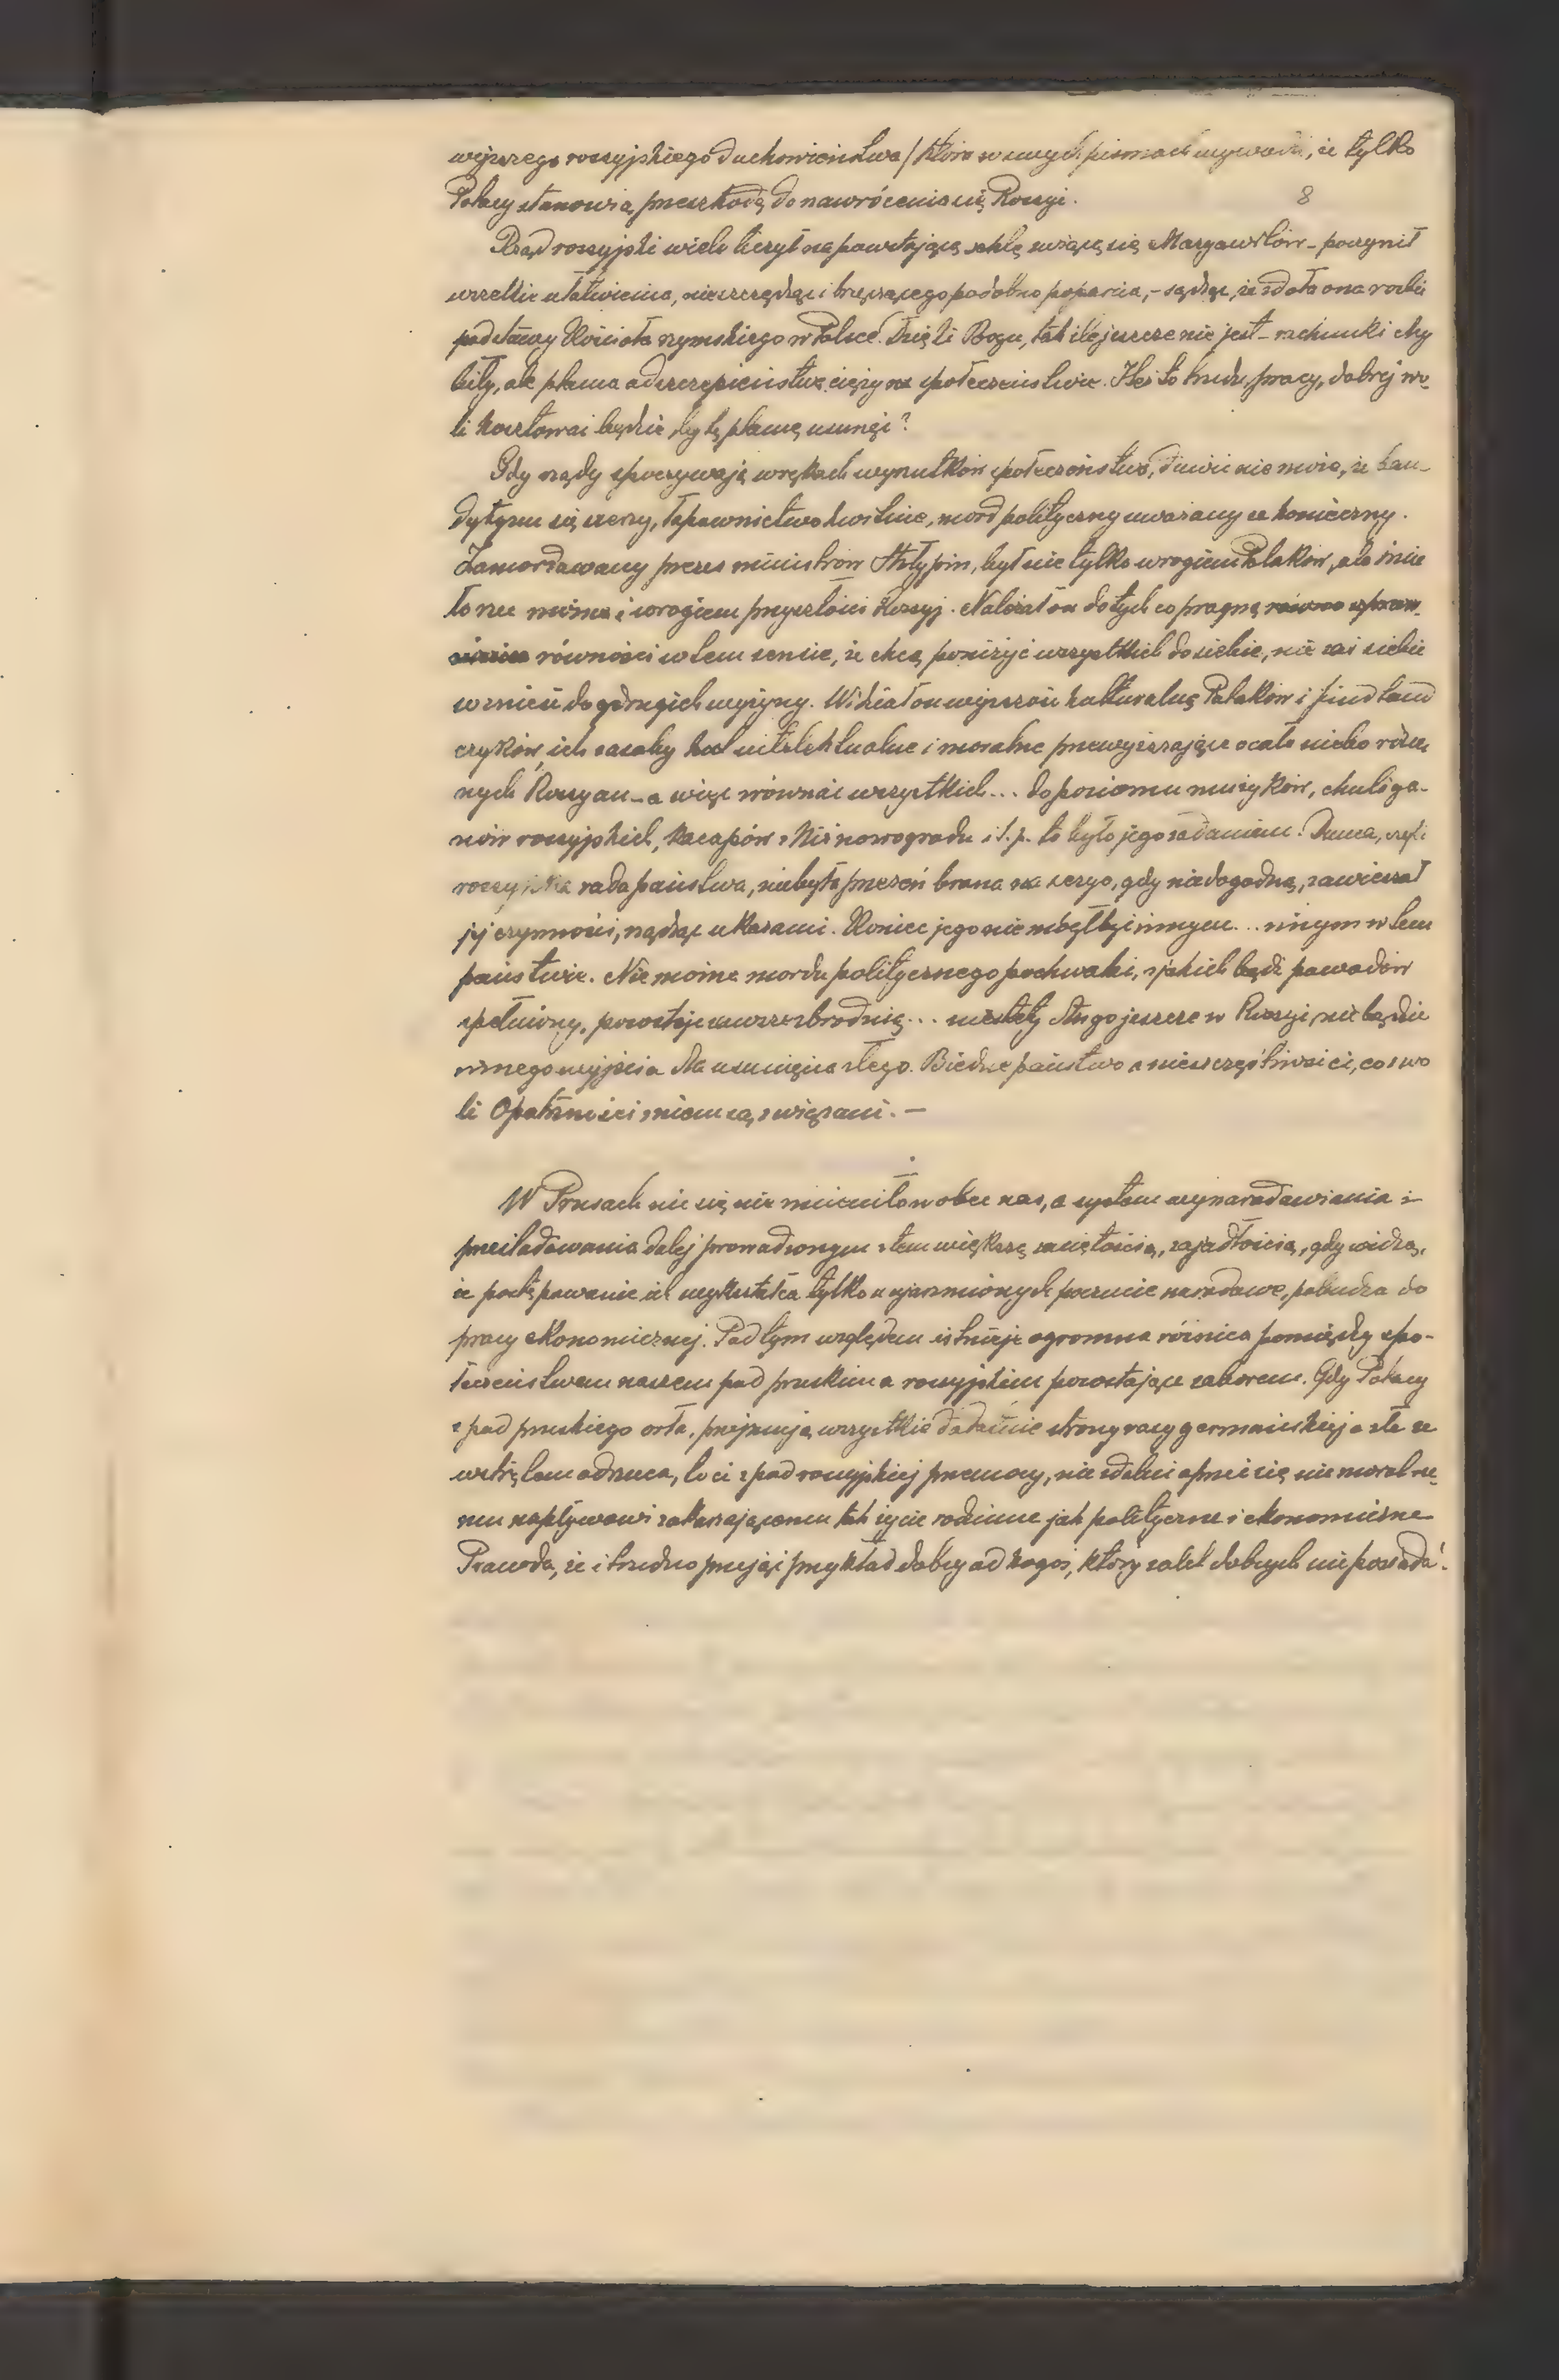 wyższego rossyjskiego duchowieństwa / które w swych pismach wywodzi, że tylko
Polacy stanowią przeszkodę do nawrócenia się Rossyi.
8
Rząd rossyjski wiele liczył na powstającą sektę zwiącą się Maryawitów – poczynił
wszelkie ułatwienia, nieszczędząc i brzęczącego podobno poparcia, – sądząc, że zdoła ona rozbić
podstawy Kościoła rzymskiego w Polsce. Dzięki Bogu, tak źle jeszcze nie jest – rachunki chy
biły, ale plama odszczepieństwa ciąży na społeczeństwie. Ileż to trudu, pracy, dobrej wo-
li kosztować będzie by tę plamę usunąć?
Gdy rządy spoczywają w rękach wyrzutków społeczeństwa, dziwić nie może, że ban-
dytyzm się szerzy, łapownictwo kwitnie, mord polityczny uważany za konieczny.
Zamordowany prezes ministrów Stołypin, był nie tylko wrogiem Polaków, ale śmia
ło rzec można i wrogiem przyszłości Rossyj. Należał on do tych co pragną równo upraw-
równości w tem sensie, że chcą poniżyć wszystkich do siebie, nie zaś siebie
wznieść do drugich wyżyny. Widział on wyższość kulturalną Polaków i Findland
czyków, ich zasoby intelektualne i moralne przewyższające o całe niebo rdzen
nych Rossyan – a więc zrównać wszystkich... do poziomu mużyków, chuliga-
nów rossyjskich, kacapów z Niżnowogrodu i t.p. to było jego zadaniem. Duma, czyli
rossyjska rada państwa, niebyła przezeń brana na seryo, gdy niedogodną, zawieszał
jej czynności, rządząc ukazami. Koniec jego nie mógł być innym... innym w tem
państwie. Nie można mordu politycznego pochwalić, z jakich bądź powodów
spełniony, pozostaje zawsze zbrodnią... niestety długo jeszcze w Rossyi nie będzie
innego wyjścia dla usunięcia złego. Biedne państwo a nieszczęśliwsi ci, co z wo
li Opatrzności z niem są związani. –
W Prusach nic się nie zmieniło wobec nas, a system wynaradawiania i
prześladowania dalej prowadzonym z tem większą zaciętością, zajadłością, gdy widzą,
że postępowanie ich wykształca tylko u ujarzmionych poczucie narodowe, pobudza do
pracy ekonomicznej. Pod tym względem istnieje ogromna różnica pomiędzy spo-
łeczeństwem naszem pod pruskim a rossyjskim pozostające zaborem. Gdy Polacy
z pod pruskiego orła, przejmują wszystkie dodatnie strony rasy germańskiej a złe ze
wstrętem odrzuca, to ci z pod rossyjskiej przemocy, nie zdolni oprzeć się niemoralne-
mu napływowi zakażającemu tak życie rodzinne jak polityczne i ekonomiczne
Prawda, że i trudno przejąć przykład dobry od kogoś, który zalet dobrych nie posiada!